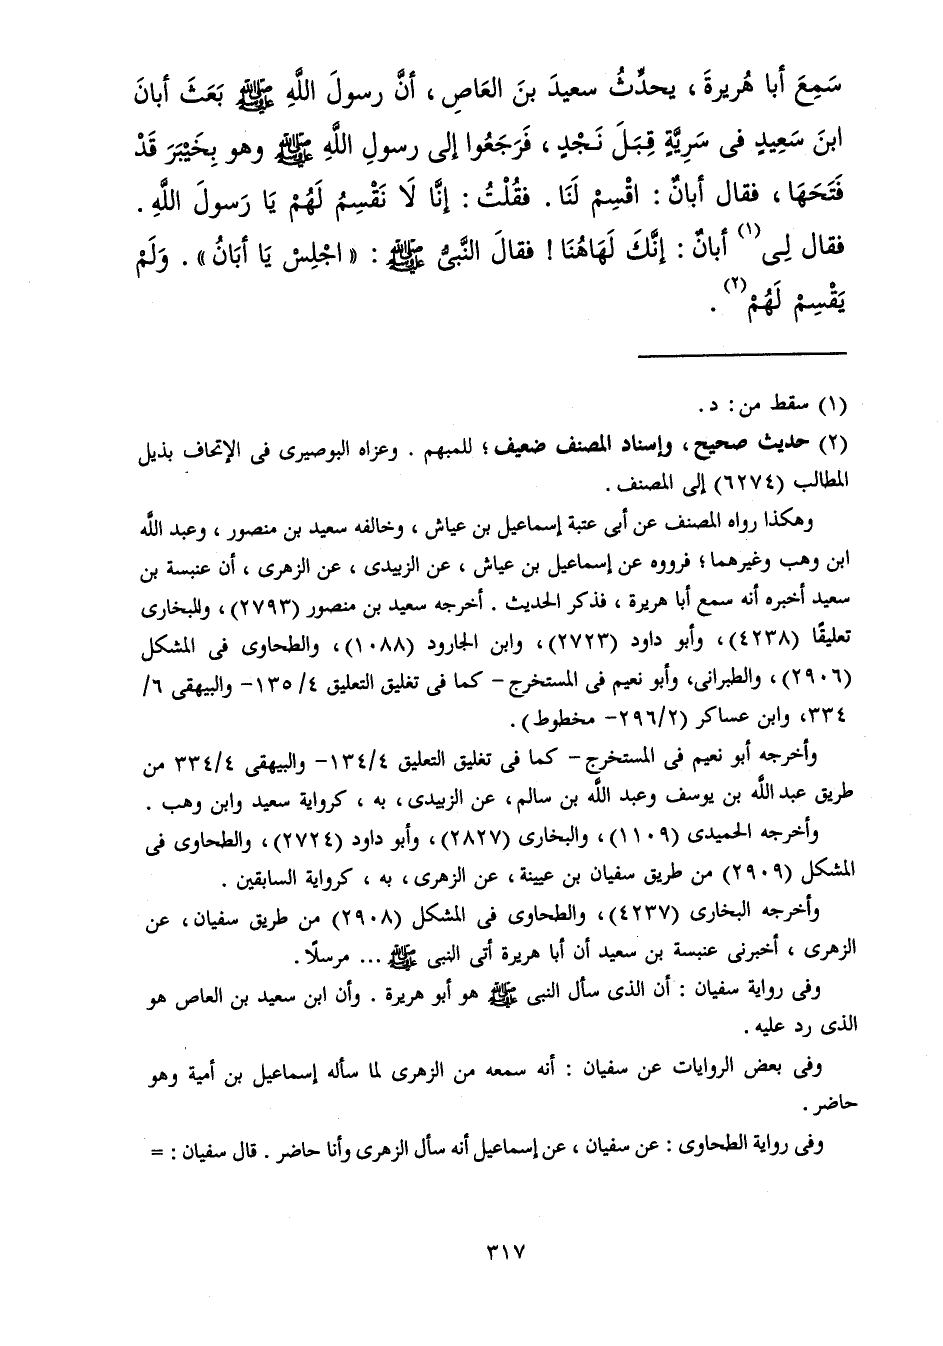 سَمِعَ أبا هُريرةَ ، يحدِّثُ سعيدَ بنَ العَاصِ ، أنَّ رسولَ اللَّهِ ﷺ بَعَثَ أبانَ
ابنَ سَعِيدٍ فى سَرِيَّةٍ قِبَلَ نَجْدٍ ، فَرَجَعُوا إلى رسولِ اللَّهِ ﷺ وهو بِخَيْبَرَ قَدْ
فَتَحَهَا ، فقال أبانٌ : اقْسِمْ لَنَا . فقُلْتُ : إنَّا لَا نَقْسِمُ لَهُمْ يَا رَسولَ اللَّهِ .
فقال لِى(١) أبانٌ : إنَّكَ لَهَاهُنَا ! فقالَ النَّبىُّ ﷺ : « اجْلِسْ يَا أبَانُ » . وَلَمْ
يَقْسِمْ لَهُمْ(٢) .
(١) سقط من : د .
(٢) حديث صحيح ، وإسناد المصنف ضعيف ؛ للمبهم . وعزاه البوصيرى فى الإتحاف بذيل
المطالب (٦٢٧٤) إلى المصنف .
وهكذا رواه المصنف عن أبى عتبة إسماعيل بن عياش ، وخالفه سعيد بن منصور ، وعبد اللَّه
ابن وهب وغيرهما ؛ فرووه عن إسماعيل بن عياش ، عن الزبيدى ، عن الزهرى ، أن عنبسة بن
سعيد أخبره أنه سمع أبا هريرة ، فذكر الحديث . أخرجه سعيد بن منصور (٢٧٩٣) ، وللبخارى
تعليقًا (٤٢٣٨) ، وأبو داود (٢٧٢٣) ، وابن الجارود (١٠٨٨) ، والطحاوى فى المشكل
(٢٩٠٦) ، والطبرانى، وأبو نعيم فى المستخرج - كما فى تغليق التعليق ٤/ ١٣٥- والبيهقى ٦/
٣٣٤، وابن عساكر (٢٩٦/٢- مخطوط) .
وأخرجه أبو نعيم فى المستخرج - كما فى تغليق التعليق ١٣٤/٤- والبيهقى ٣٣٤/٤ من
طريق عبد اللَّه بن يوسف وعبد اللَّه بن سالم، عن الزبيدى ، به ، كرواية سعيد وابن وهب .
وأخرجه الحميدى (١١٠٩) ، والبخارى (٢٨٢٧) ، وأبو داود (٢٧٢٤) ، والطحاوى فى
المشكل (٢٩٠٩) من طريق سفيان بن عيينة ، عن الزهرى ، به ، كرواية السابقين .
وأخرجه البخارى (٤٢٣٧) ، والطحاوى فى المشكل (٢٩٠٨) من طريق سفيان ، عن
الزهرى ، أخبرنى عنبسة بن سعيد أن أبا هريرة أتى النبى ﷺ ... مرسلًا .
وفى رواية سفيان : أن الذى سأل النبى ﷺ هو أبو هريرة . وأن ابن سعيد بن العاص هو
الذى رد عليه .
وفى بعض الروايات عن سفيان : أنه سمعه من الزهرى لما سأله إسماعيل بن أمية وهو
حاضر .
وفى رواية الطحاوى : عن سفيان ، عن إسماعيل أنه سأل الزهرى وأنا حاضر . قال سفيان : =
٣١٧